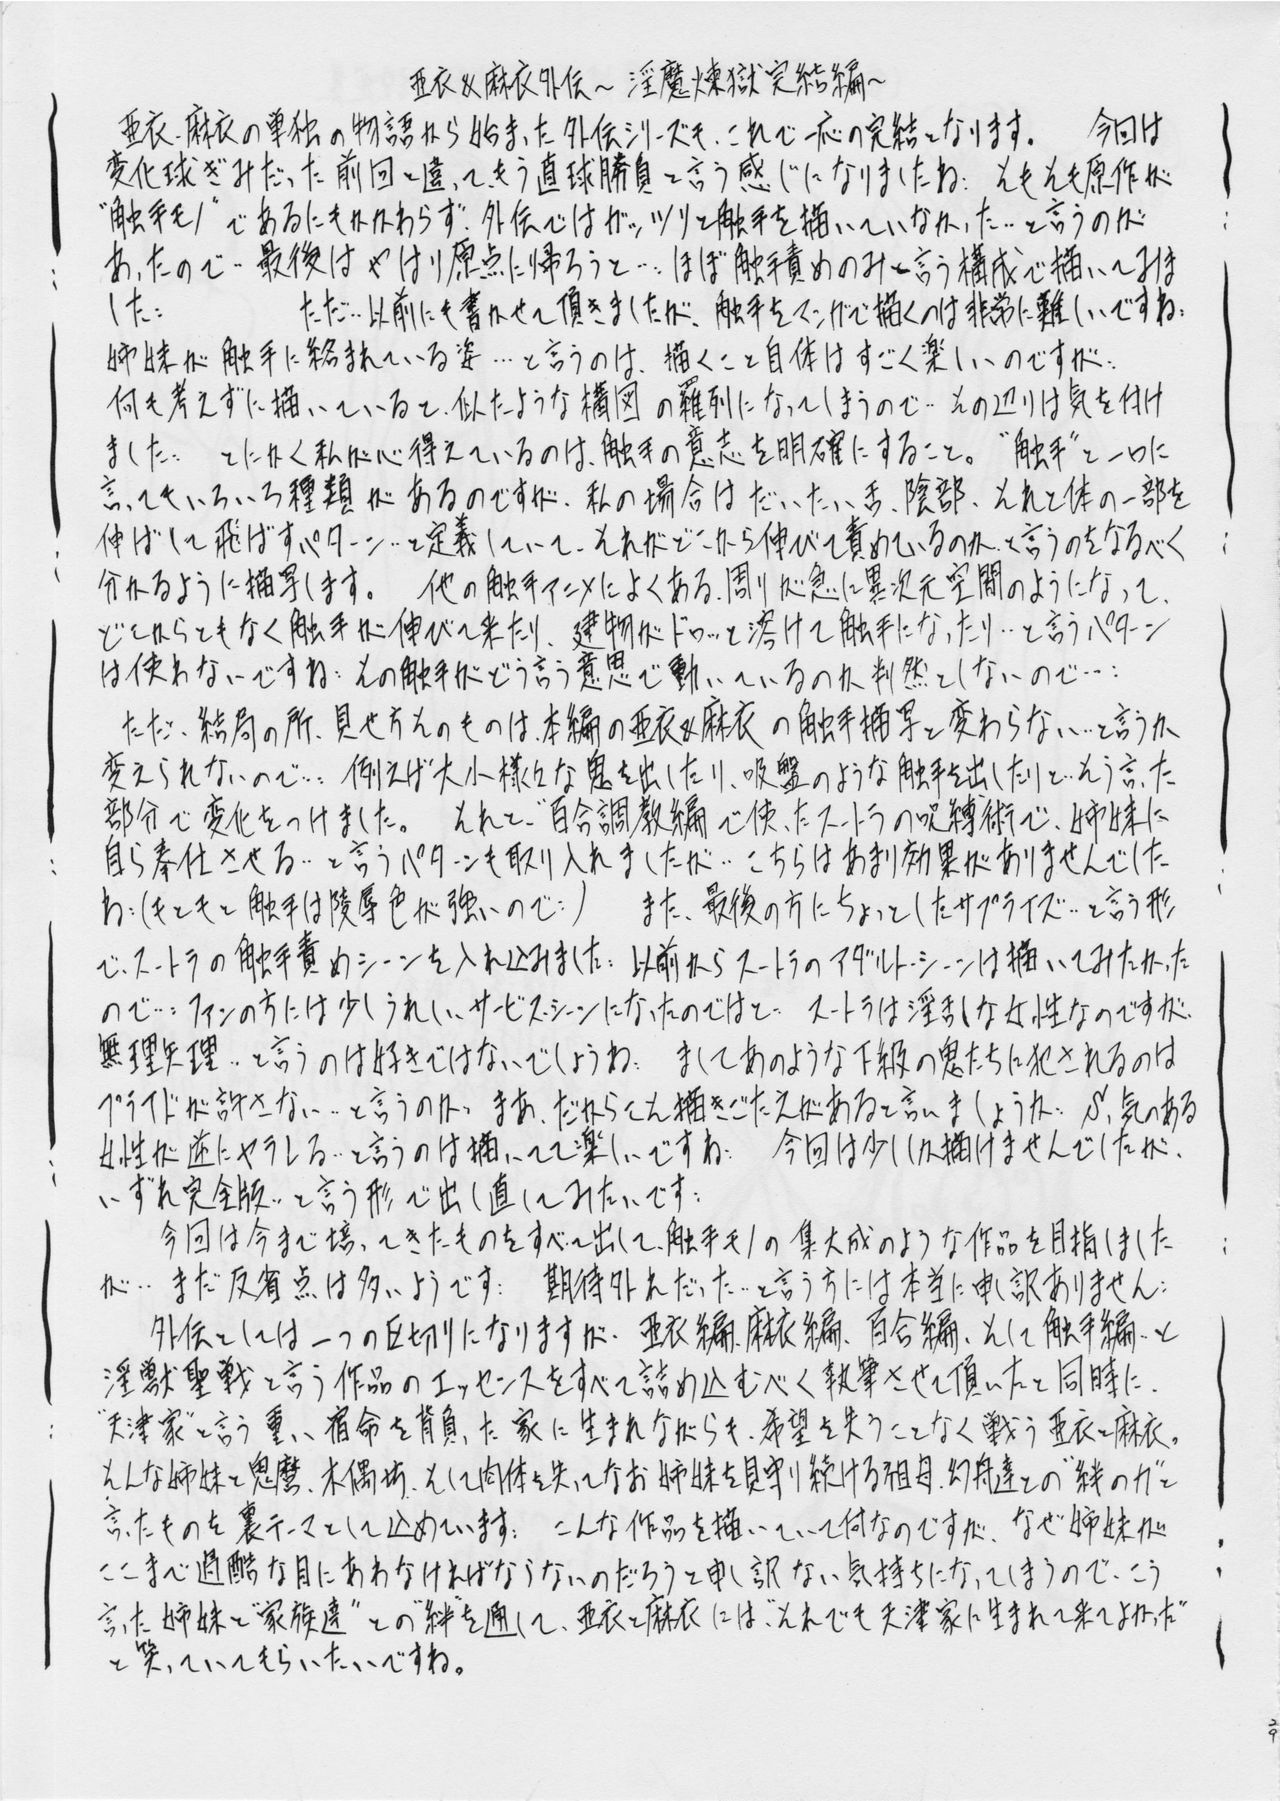 亜衣&麻衣外伝~淫魔煉獄完結編~
亜衣・麻衣の単独の物語から始まった外伝シリーズも、これで一応の完結となります。 今回は
変化球ぎみだった前回と違って、もう直球勝負と言う感じになりましたね… そもそも原作が
"触手モノ"であるにもかかわらず、外伝ではガッツリと触手を描いていなかった…と言うのが
あったので… 最後はやはり原点に帰ろうと… ほぼ触手責めのみと言う構成で描いてみま
した… ただ…以前にも書かせて頂きましたが、触手をマンガで描くのは非常に難しいですね…
姉妹が触手に絡まれている姿…と言うのは、描くこと自体はすごく楽しいのですが…
何も考えずに描いていると、似たような構図の羅列になってしまうので… その辺りは気を付け
ました… とにかく私が心得えているのは、触手の意志を明確にすること。"触手"と一口に
言ってもいろいろ種類があるのですが、私の場合はだいたい舌、陰部、それと体の一部を
伸ばして飛ばすパターン…と定義していて、それがどこから伸びて責めているのか、と言うのをなるべく
分かるように描写します。 他の触手アニメによくある、周りが急に異次元空間のようになって、
どこからともなく触手が伸びて来たり、建物がドロッと溶けて触手になったり…と言うパターン
は使わないですね… その触手がどう言う意思で動いているのか判然としないので…
ただ、結局の所、見せ方そのものは、本編の亜衣&麻衣の触手描写と変わらない…と言うか、
変えられないので… 例えば大小様々な鬼を出したり、吸盤のような触手を出したりと…そう言った
部分で変化をつけました。 それと、"百合調教編"で使ったスートラの呪縛術で、姉妹に
自ら奉仕させる…と言うパターンも取り入れましたが… こちらはあまり効果がありませんでした
ね…(もともと触手は陵辱色が強いので…) また、最後の方にちょっとしたサプライズ…と言う形
で、スートラの触手責めシーンを入れ込みました… 以前からスートラのアダルトシーンは描いてみたかった
ので… ファンの方には少しうれしいサービスシーンになったのではと… スートラは淫乱な女性なのですが、
無理矢理…と言うのは好きではないでしょうね… ましてあのような下級の鬼たちに犯されるのは
プライドが許さない…と言うのか、まあ、だからこそ描きごたえがあると言いましょうか… S気のある
女性が逆にヤラレる…と言うのは描いてて楽しいですね… 今回は少ししか描けませんでしたが、
いずれ完全版…と言う形で出し直してみたいです…
今回は今まで培ってきたものをすべて出して、触手モノの集大成のような作品を目指しました
が… まだ反省点は多いようです… 期待外れだった…と言う方には本当に申し訳ありません…
外伝としては一つの区切りになりますが、亜衣編、麻衣編、百合編、そして触手編…と
淫獣聖戦と言う作品のエッセンスをすべて詰め込むべく執筆させて頂いたと同時に、
"天津家"と言う重い宿命を背負った家に生まれながらも、希望を失うことなく戦う亜衣と麻衣。
そんな姉妹と鬼麿、木偶坊、そして肉体を失ってなお姉妹を見守り続ける祖母、幻舟達との"絆の力"と
言ったものを裏テーマとして込めています… こんな作品を描いていて何なのですが、なぜ姉妹が
ここまで過酷な目にあわなければならないのだろうと申し訳ない気持ちになってしまうので、こう
言った姉妹と"家族達"との"絆"を通して、亜衣と麻衣には"それでも天津家に生まれて来てよかった"
と笑っていてもらいたいですね。
29